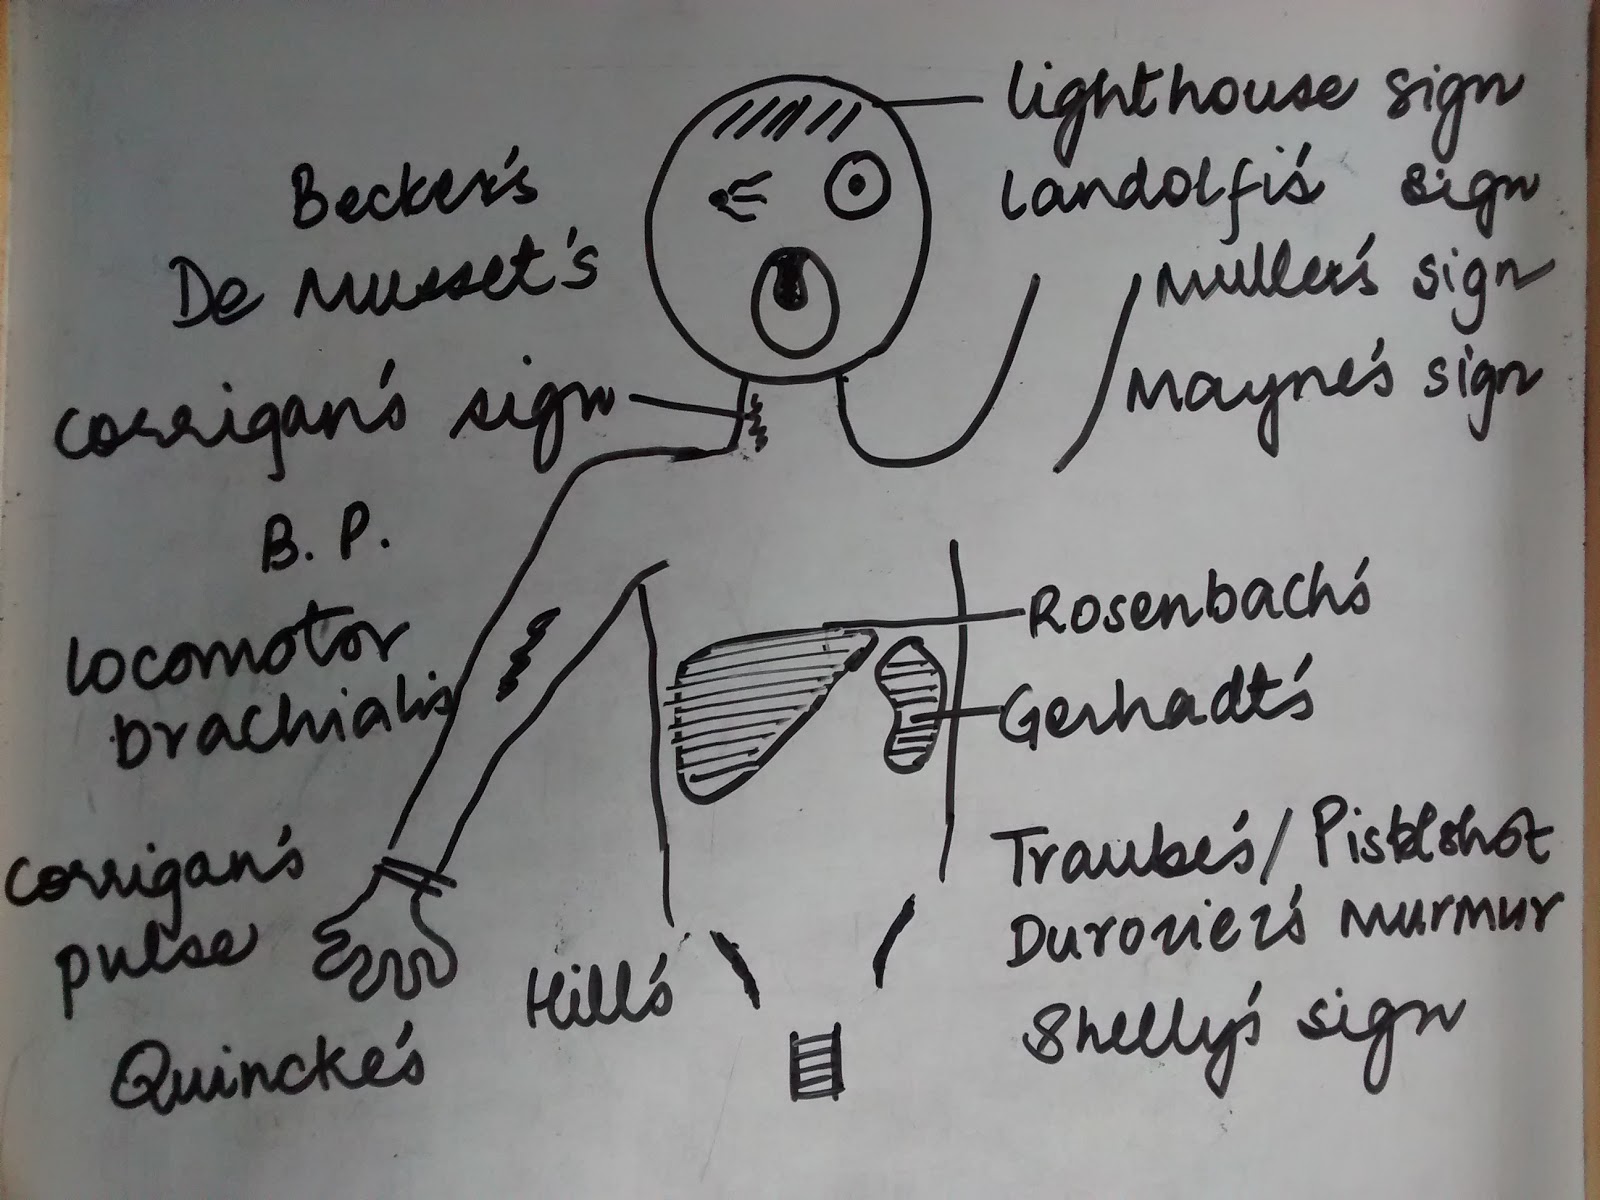 lighthouse sign
Becker's
landolfi's sign
De Musset's
Muller's sign
Corrigan's sign
Mayne's sign
B. P.
Rosenbach's
locomotor
brachialis
Gerhadt's
Corrigan's
pulse
Traube's/Pistolshot
Duroziez's murmur
Hill's
Shelly's sign
Quincke's